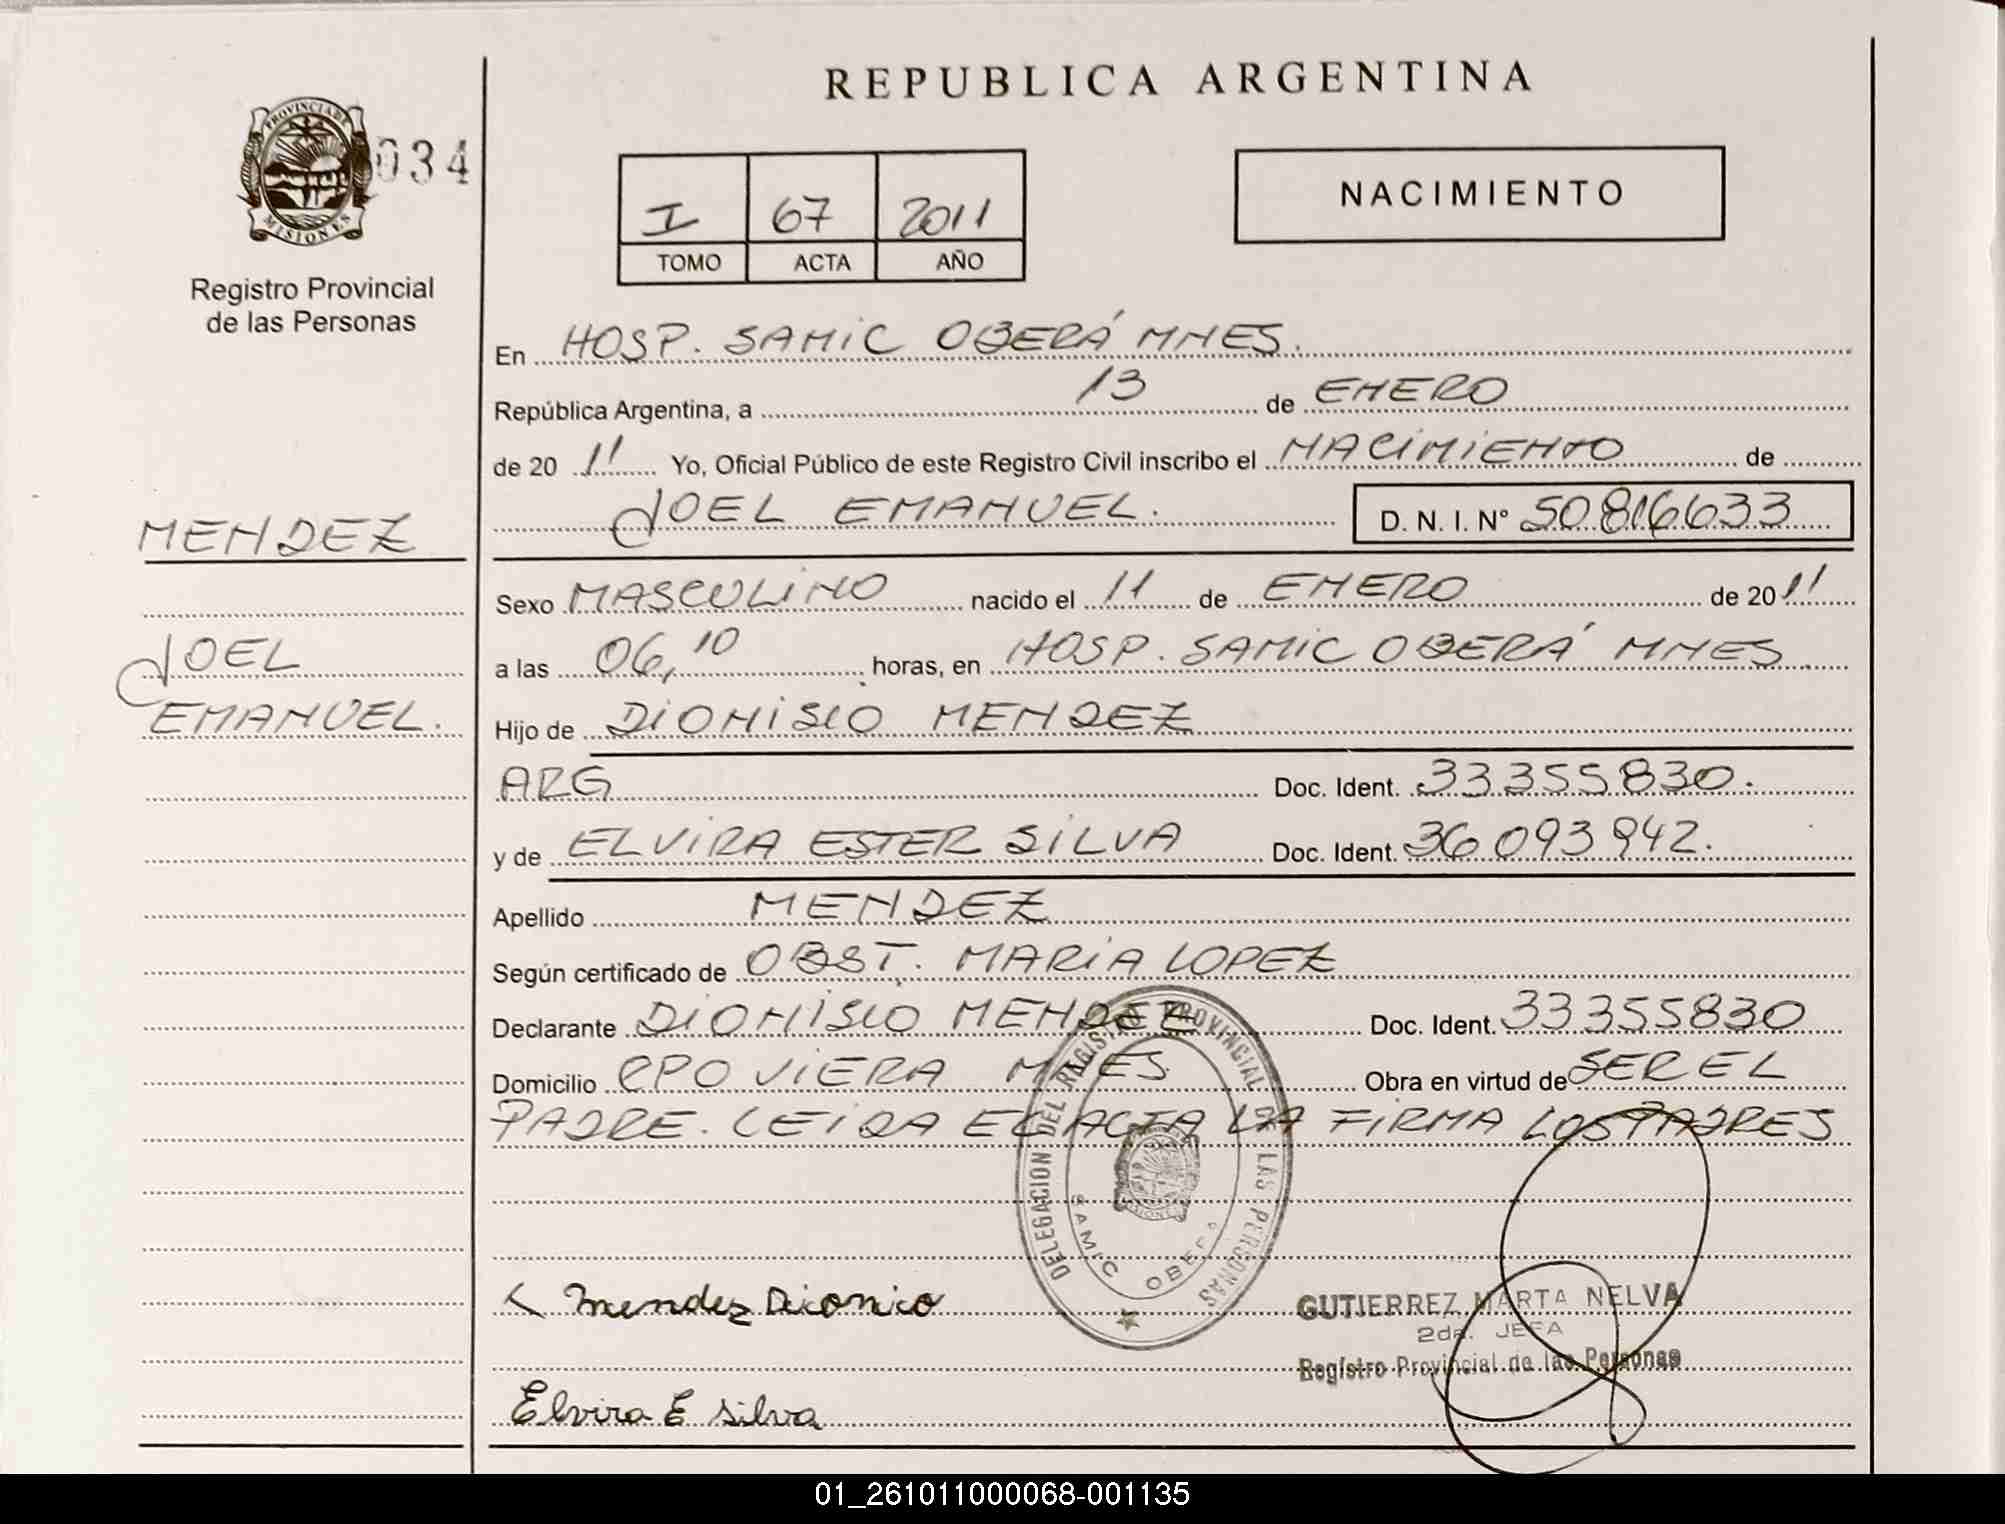 REPUBLICA ARGENTINA
PROVINCIA DE
MISIONES
034
Registro Provincial
de las Personas
I 67 2011
TOMO ACTA AÑO
NACIMIENTO
En HOSP. SAMIC OBERÁ MNES.
República Argentina, a 13 de ENERO
de 20 11 Yo, Oficial Público de este Registro Civil inscribo el NACIMIENTO de
JOEL EMANUEL. D. N. I. N° 50816633
MENDEZ
JOEL
EMANUEL.
Sexo MASCULINO nacido el 11 de ENERO de 20 11
a las 06,10 horas, en HOSP. SAMIC OBERÁ MNES.
Hijo de DIONISIO MENDEZ
ARG Doc. Ident. 33355830.
y de ELVIRA ESTER SILVA Doc. Ident. 36093942.
Apellido MENDEZ
Según certificado de OBST. MARIA LOPEZ
Declarante DIONISIO MENDEZ Doc. Ident. 33355830
Domicilio CPO VIERA MNES Obra en virtud de SER EL
PADRE. LEIDA EL ACTA LA FIRMA LOS PADRES
DELEGACION DEL REGISTRO PROVINCIAL DE LAS PERSONAS
SAMIC OBERA
MISIONES
Mendez Dionicio
GUTIERREZ MARTA NELVA
2da. JEFA
Registro Provincial de las Personas
Elvira E Silva
01_261011000068-001135